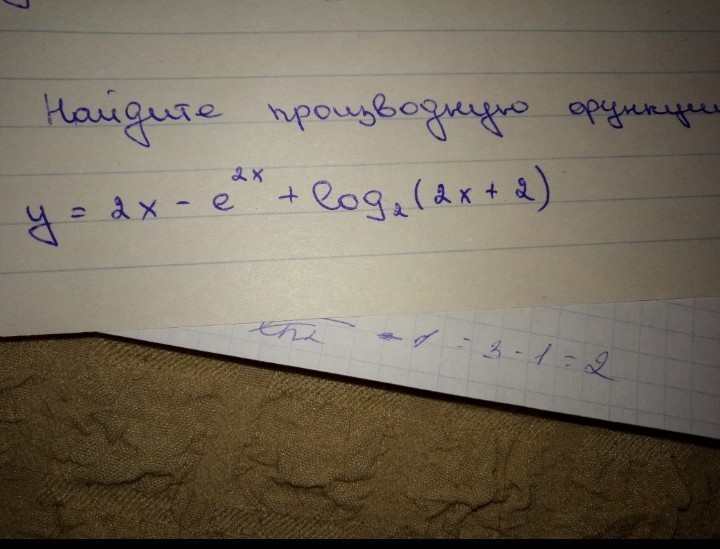 Найдите производную функции
y = 2x - e^{2x} + log₂(2x + 2)
- 1 = 3 - 1 = 2